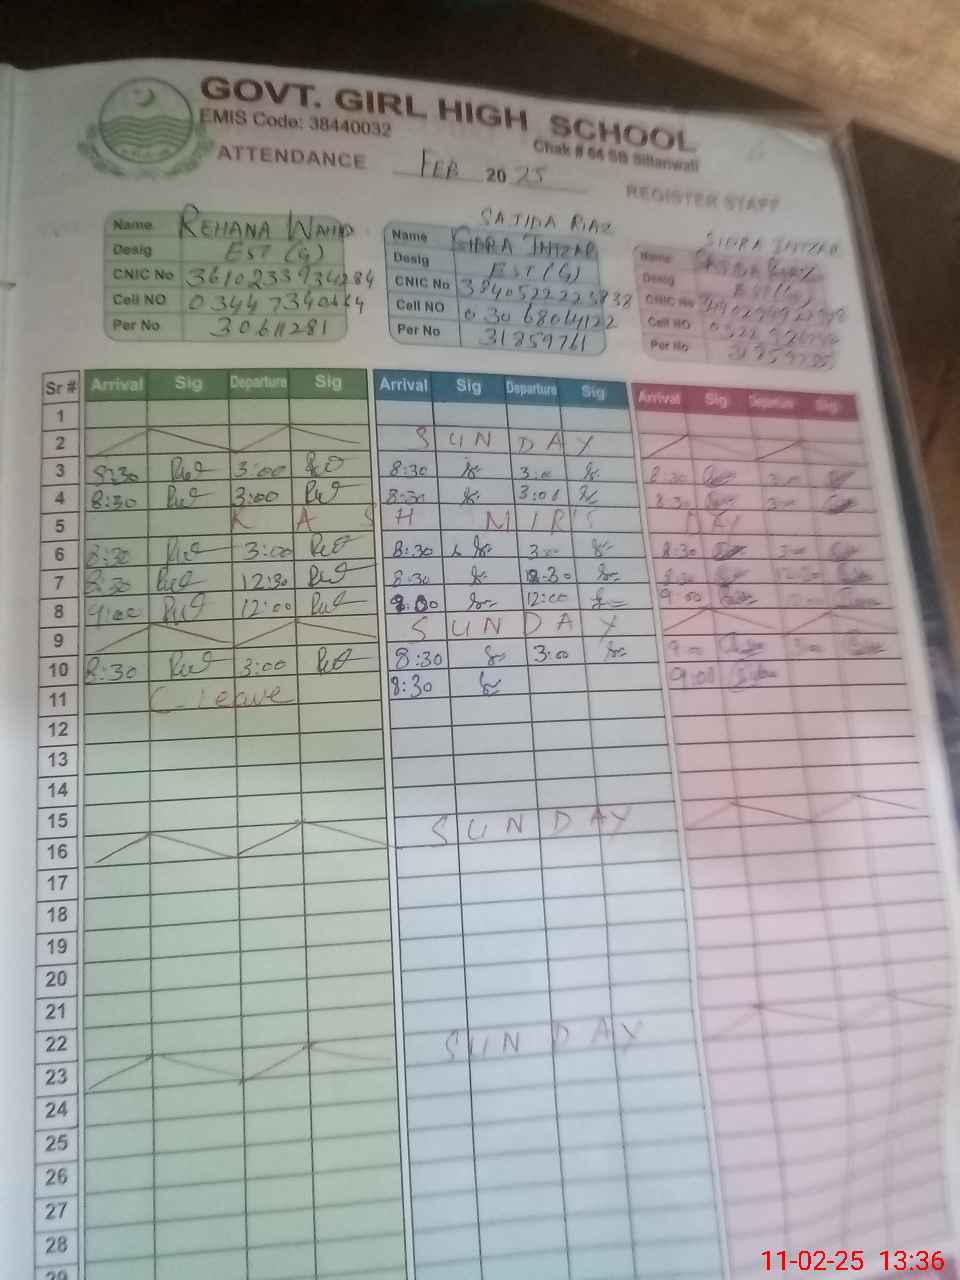 GOVT. GIRL HIGH SCHOOL
EMIS Code: 38440032
Chak # 64 SB Sillanwali
ATTENDANCE FEB 2025 REGISTER STAFF
Name REHANA WAHID
Desig EST (G)
CNIC No 3610233934284
Cell NO
Per No 30611281
SAJIDA RIAZ
Name SIDRA INTZAR
Desig EST (G)
CNIC No 3840522223838
Cell NO
Per No 31859761
SIDRA INTZAR
Name SAJIDA RIAZ
Desig EST (G)
CNIC No
Cell NO
Per No
Sr # Arrival Sig Departure Sig Arrival Sig Departure Sig Arrival Sig Departure Sig
1
2 SUNDAY
3 8:30 3:00 8:30 3:00 8:30 3:00
4 8:30 3:00 8:30 3:00 8:30 3:00
5 KASHMIRIS DAY
6 8:30 3:00 8:30 3:00 8:30 3:00
7 8:30 12:30 8:30 12:30 8:30 12:30
8 9:00 12:00 12:00 9:00
9 SUNDAY
10 8:30 3:00 8:30 3:00 9:00 3:00
11 C-Leave 8:30 9:00
12
13
14
15
16 SUNDAY
17
18
19
20
21
22
23 SUNDAY
24
25
26
27
28
29
11-02-25 13:36